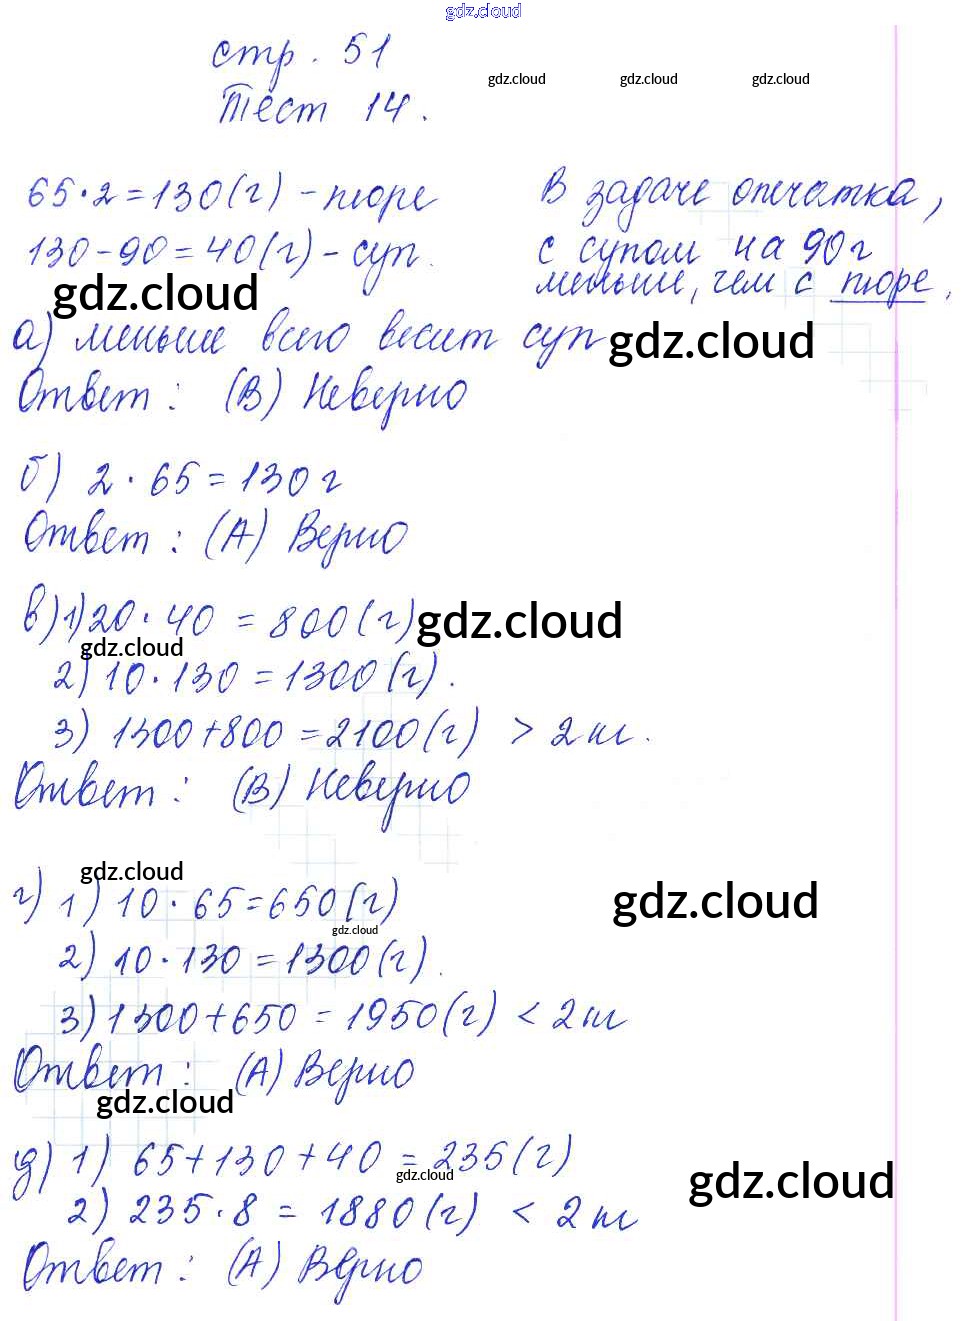 gdz.cloud
стр. 51
gdz.cloud gdz.cloud gdz.cloud
Тест 14.
65·2=130(г) - пюре
130-90=40(г) - суп.
В задаче опечатка,
с супом на 90г
меньше, чем с пюре.
gdz.cloud
а) меньше всего весит суп
gdz.cloud
Ответ: (В) Неверно
б) 2·65=130г
Ответ: (А) Верно
в) 1) 20·40 = 800(г)
gdz.cloud
gdz.cloud
2) 10·130 = 1300(г).
3) 1300+800 = 2100(г) > 2кг.
Ответ: (В) Неверно
gdz.cloud
г) 1) 10·65=650(г)
gdz.cloud
gdz.cloud
2) 10·130 = 1300(г).
3) 1300+650 = 1950(г) < 2кг
Ответ: (А) Верно
gdz.cloud
д) 1) 65+130+40 = 235(г)
gdz.cloud
gdz.cloud
2) 235·8 = 1880(г) < 2кг
Ответ: (А) Верно